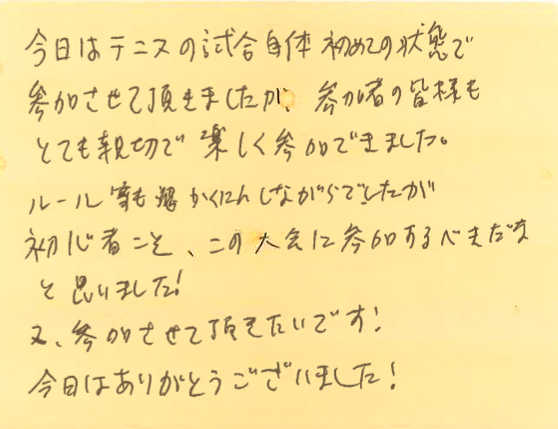 今日はテニスの試合自体初めての状態で
参加させて頂きましたが、参加者の皆様も
とても親切で楽しく参加できました。
ルール等も かくにんしながらでしたが
初心者こそ、この大会に参加するべきだな
と思いました!
又、参加させて頂きたいです!
今日はありがとうございました!